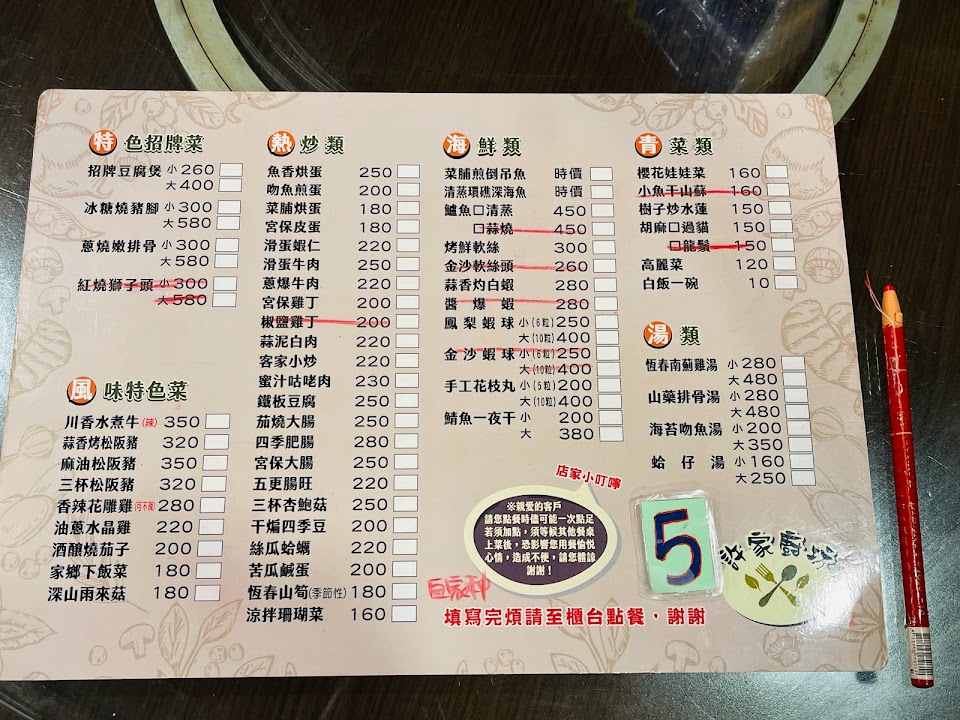 特色招牌菜
招牌豆腐煲 小 260
大 400
冰糖燒豬腳 小 300
大 580
蔥燒嫩排骨 小 300
大 580
紅燒獅子頭 小 300
大 580
風味特色菜
川香水煮牛(辣) 350
蒜香烤松阪豬 320
麻油松阪豬 350
三杯松阪豬 320
香辣花雕雞(可不辣) 280
油蔥水晶雞 220
酒釀燒茄子 200
家鄉下飯菜 180
深山雨來菇 180
熱炒類
魚香烘蛋 250
吻魚煎蛋 200
菜脯烘蛋 180
宮保皮蛋 180
滑蛋蝦仁 220
滑蛋牛肉 250
蔥爆牛肉 220
宮保雞丁 200
椒鹽雞丁 200
蒜泥白肉 220
客家小炒 220
蜜汁咕咾肉 230
鐵板豆腐 250
茄燒大腸 250
四季肥腸 280
宮保大腸 250
五更腸旺 220
三杯杏鮑菇 250
干煸四季豆 200
絲瓜蛤蠣 220
苦瓜鹹蛋 200
恆春山筍(季節性) 180
涼拌珊瑚菜 160
海鮮類
菜脯煎倒吊魚 時價
清蒸環礁深海魚 時價
鱸魚口清蒸 450
口蒜燒 450
烤鮮軟絲 300
金沙軟絲頭 260
蒜香灼白蝦 280
醬爆蝦 280
鳳梨蝦球 小(6粒) 250
大(10粒) 400
金沙蝦球 小(6粒) 250
大(10粒) 400
手工花枝丸 小(5粒) 200
大(10粒) 400
鯖魚一夜干 小 200
大 380
青菜類
櫻花娃娃菜 160
小魚干山蘇 160
樹子炒水蓮 150
胡麻口過貓 150
口龍鬚 150
高麗菜 120
白飯一碗 10
湯類
恆春南薊雞湯 小 280
大 480
山藥排骨湯 小 280
大 480
海苔吻魚湯 小 200
大 350
蛤仔湯 小 160
大 250
店家小叮嚀
※親愛的客戶
請您點餐時儘可能一次點足
若須加點，須等候其他餐桌
上菜後，恐影響您用餐愉悅
心情，造成不便，請您體諒
謝謝！
5
許家廚坊
填寫完煩請至櫃台點餐，謝謝